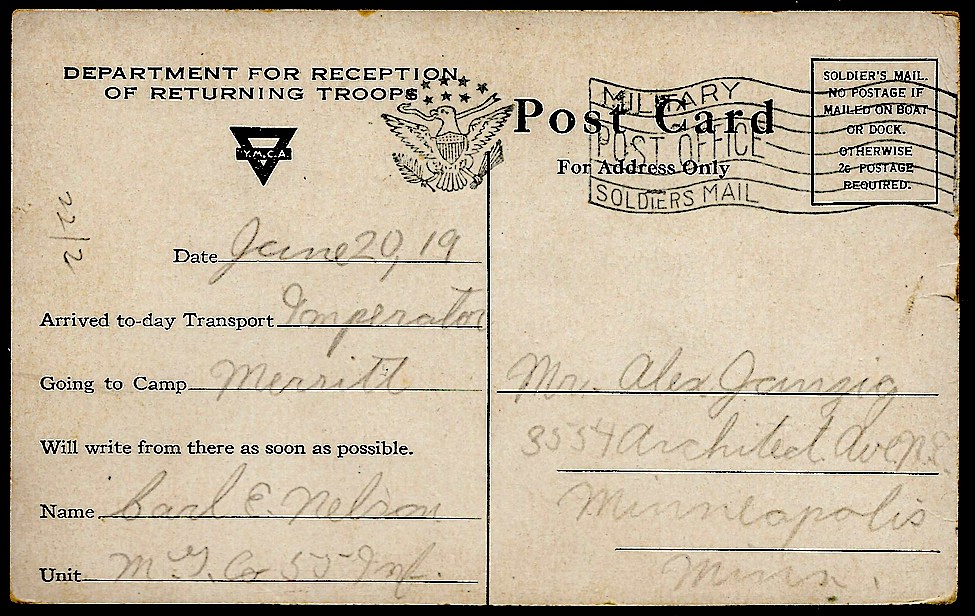 DEPARTMENT FOR RECEPTION
OF RETURNING TROOPS
Y.M.C.A.
22/2
Date June 20, 19
Arrived to-day Transport Imperator
Going to Camp Merritt
Will write from there as soon as possible.
Name Carl E. Nelson
Unit M. G. Co 55 Inf.
Post Card
For Address Only
MILITARY
POST OFFICE
SOLDIERS MAIL
SOLDIER'S MAIL.
NO POSTAGE IF
MAILED ON BOAT
OR DOCK.
OTHERWISE
2c POSTAGE
REQUIRED.
Mr. Alex Janzig
3554 Architect Ave N.E.
Minneapolis
Minn.